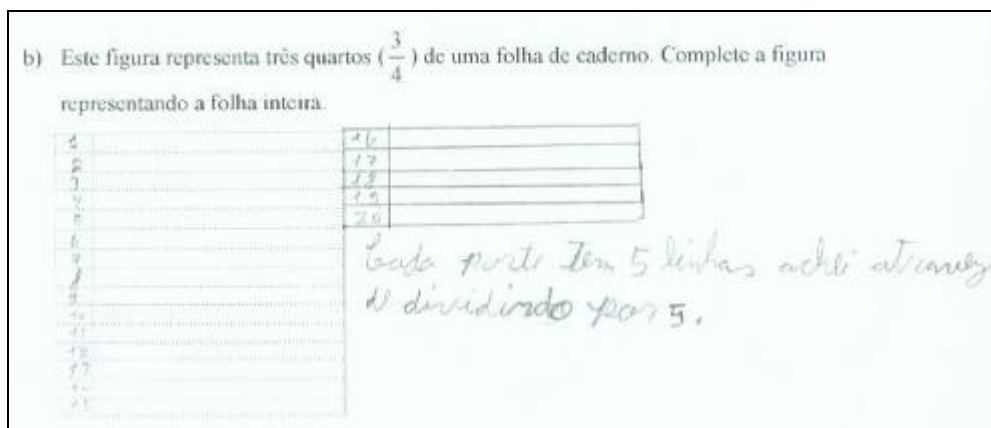 b) Este figura representa três quartos ( 3/4 ) de uma folha de caderno. Complete a figura
representando a folha inteira.
1
2
3
4
5
6
7
8
9
10
11
12
13
16
17
18
19
20
Cada parte Tem 5 linhas achei atravez
d dividindo por 5.